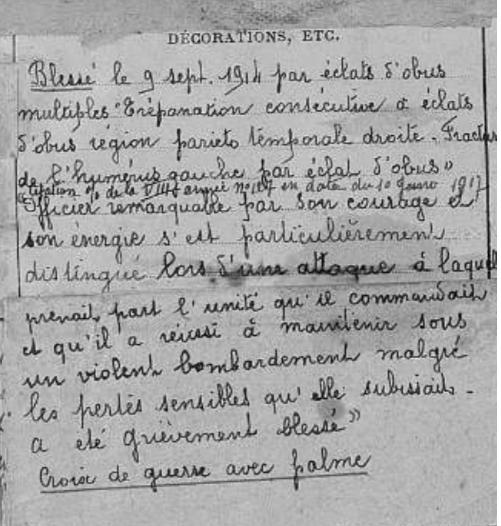 DÉCORATIONS, ETC.
Blessé le 9 sept. 1914 par éclats d'obus
multiples "Trépanation consécutive à éclats
d'obus région pariéto temporale droite. Fracture
de l'humérus gauche par éclat d'obus"
Citation % de la VIIIe armée No 187 en date du 10 1917
"Officier remarquable par son courage et
son énergie s'est particulièrement
distingué lors d'une attaque à laquelle
prenait part l'unité qu'il commandait
et qu'il a réussi à maintenir sous
un violent bombardement malgré
les pertes sensibles qu'elle subissait.
a été grièvement blessé"
Croix de guerre avec palme